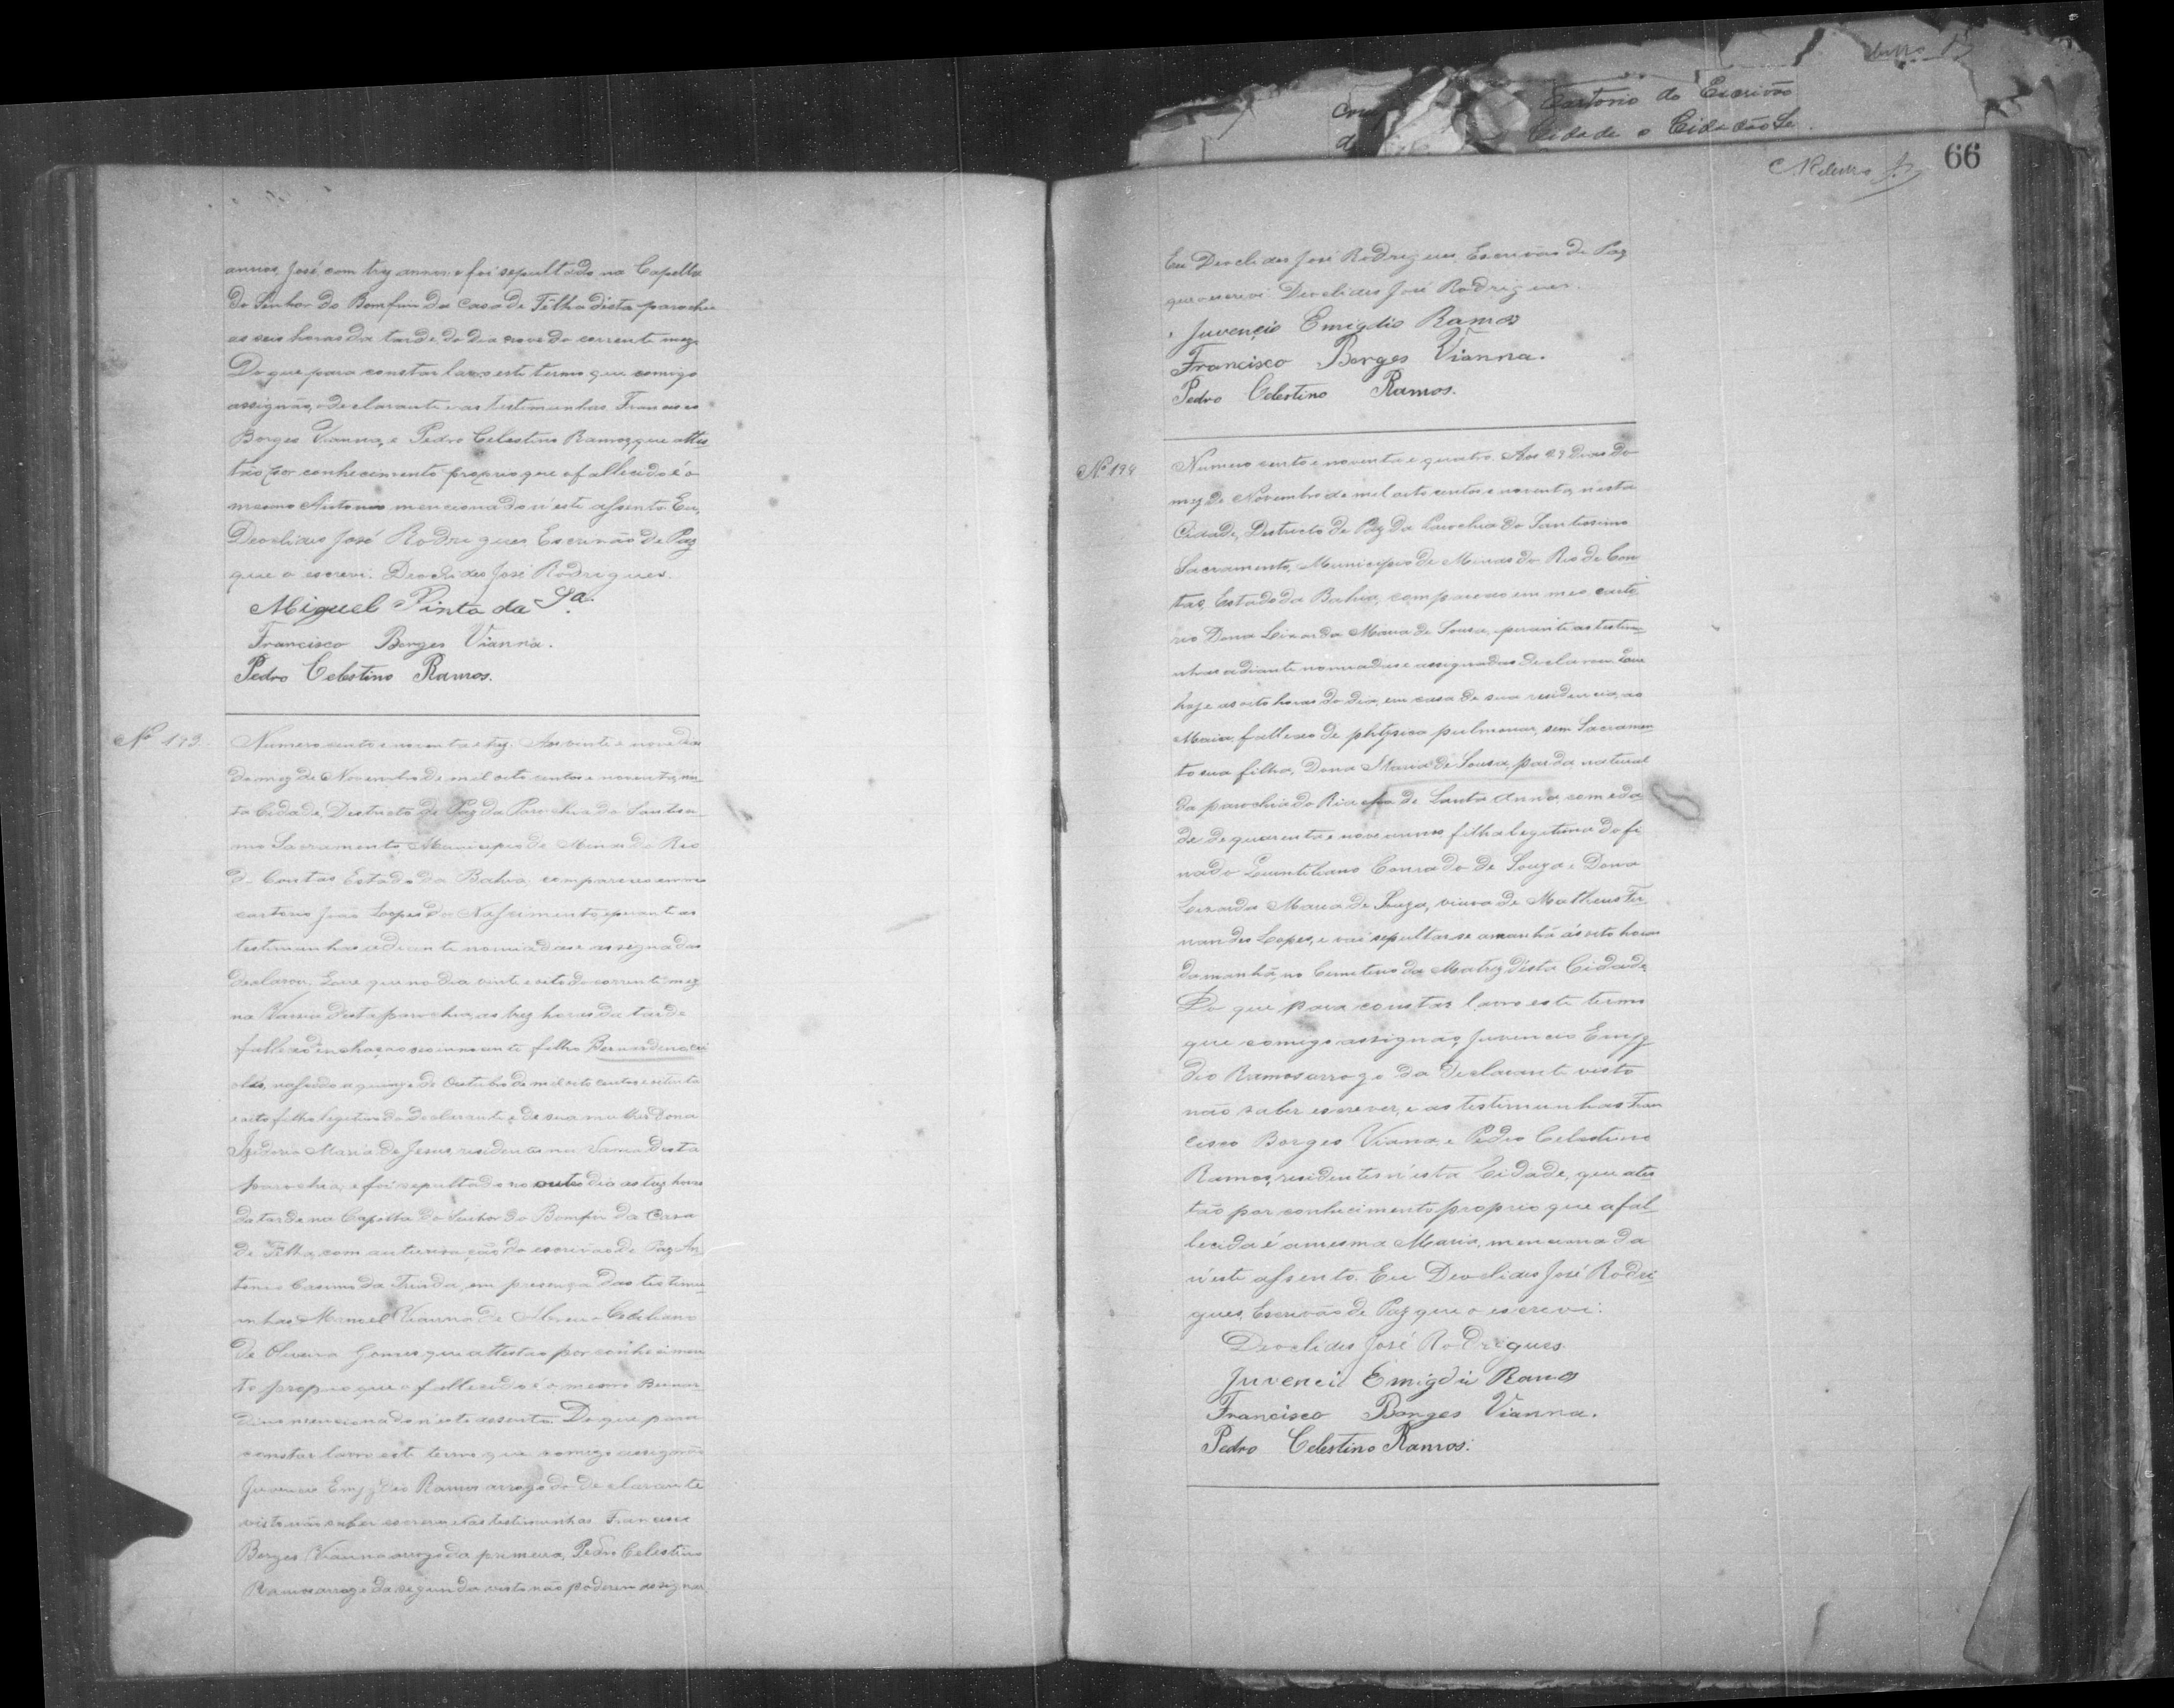 annos, José, com trez annos: e foi sepultado na Capella
do Senhor do Bomfim da Casa de Têlha d'esta parochia
as seis horas da tarde, do dia nove do corrente mez.
Do que para constar lavro este termo que comigo
assignão, o declarante e as testimunhas Francisco
Borges Vianna, e Pedro Celestino Ramos, que attes
tão por conhecimento proprio que o fallecido é o
mesmo Antonio mencionado n'este assento. Eu,
Deoclides José Rodrigues, Escrivão de Paz
que o escrevi. Deoclides José Rodrigues.
Miguel Pinto da Sa.
Francisco Borges Vianna.
Pedro Celestino Ramos.
No 193.
Numero cento e noventa e trez. Aos vinte e nove dias
do mez de Novembro de mil oito centos e noventa, nes
ta Cidade, Destricto de Paz da Parochia do Santissi
mo Sacramento, Municipio de Minas do Rio
de Contas, Estado da Bahia, compareceo em meo
cartorio João Lopes do Nascimento, perante as
testimunhas adiante nomiadas e assignadas
declarou, que no dia vinte e oito do corrente mez
na Varzea d'esta parochia, as trez horas da tarde
falleceo de inchação seo innocente filho Bernardino
nascido a quinze de Outubro de mil oito centos e oitenta
e oito filho legitimo do declarante, e de sua mulher Dona
Izidoria Maria de Jesus, residentes na Varzea d'esta
parochia, e foi sepultado no outro dia as trez horas
da tarde na Capella do Senhor do Bomfim da Casa
de Telha, com autorisação do escrivão de Paz An
tonio Casimo da Trinda, em presença das testimu
nhas Manoel Vianna de Abreu e
de Oliveira Gomes, que attestão por conhecimen
to proprio que o fallecido é o mesmo Bernar
dino mencionado n'este assento. Do que para
constar lavro este termo, que comigo assignão
Juvencio Emygdio Ramos arrogo do declarante
visto não saber escrever e as testimunhas Francisco
Borges Vianna arrogo da primeira, Pedro Celestino
Ramos arrogo da segunda visto não poderem assignar.
Cartorio do Escrivão
Cidade o Cidadão
66
Eu Deoclides José Rodrigues, Escrivão de Paz
que o escrevi. Deoclides José Rodrigues.
Juvencio Emigdio Ramos
Francisco Borges Vianna.
Pedro Celestino Ramos.
No 194
Numero cento e noventa e quatro. Aos 29 dias do
mez de Novembro de mil oito centos e noventa, n'esta
Cidade, Destricto de Paz da Parochia do Santissimo
Sacramento, Municipio de Minas do Rio de Con
tas, Estado da Bahia, compareceo em meo carto
rio Dona Lizarda Maria de Souza, perante as testimu
nhas adiante nomiadas e assignadas declarou que
hoje as oito horas do dia, em casa de sua residencia, ao
Maia, falleceo de phtysica pulmonar, sem Sacramen
to sua filha, Dona Maria de Souza, parda, natural
da parochia do Riacho de Santa Anna, com eda
de de quarenta e nove annos filha legitima do fi
nado Quintiliano Conrado de Souza e Dona
Lizarda Maria de Souza, viuva de Matheus Fer
nandes Lopes, e vai sepultar-se amanhã ás oito horas
da manhã, no Cemiterio da Matriz d'esta Cidade.
Do que para constar lavro este termo
que comigo assignão, Juvencio Emyg
dio Ramos arrogo da declarante visto
não saber escrever, e as testimunhas Fran
cisco Borges Viana e Pedro Celestino
Ramos, residentes n'esta Cidade, que ates
tão por conhecimento proprio que a fal
lecida é a mesma Maria, menciona da
n'este assento. Eu Deoclides José Rodri
gues, Escrivão de Paz que o escrevi.
Deoclides José Rodrigues.
Juvencio Emigdio Ramos
Francisco Borges Vianna.
Pedro Celestino Ramos.